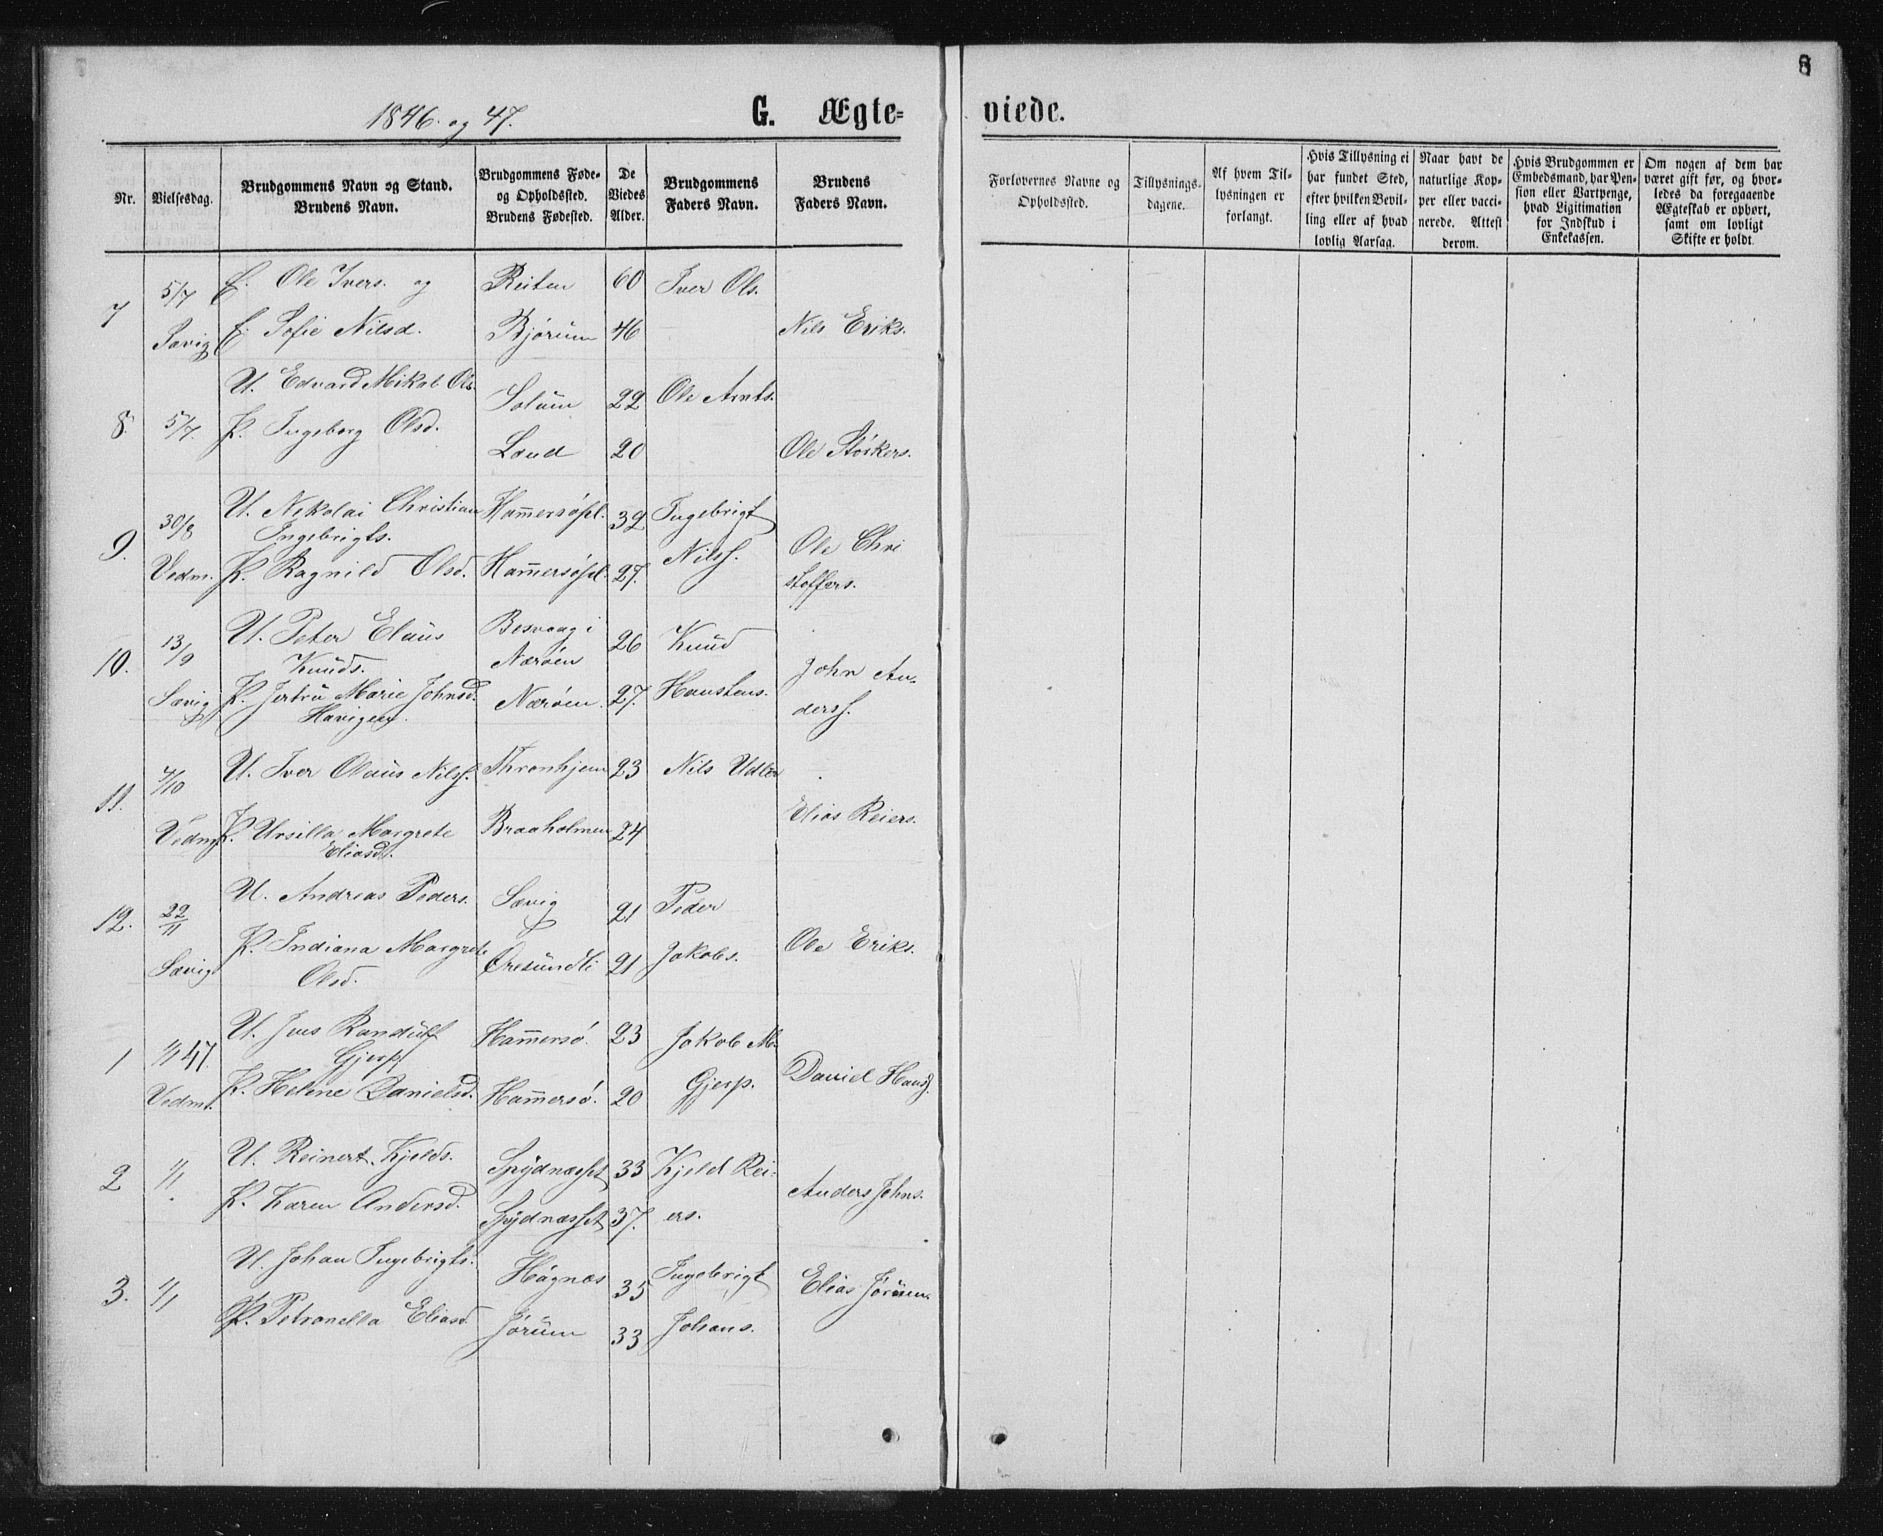 8
1846. og 47.
G. Ægte=
viede.
Nr.
Vielsesdag.
Brudgommens Navn og Stand.
Brudens Navn.
Brudgommens Føde-
og Opholdssted.
Brudens Fødested.
De
Viedes
Alder.
Brudgommens
Faders Navn.
Brudens
Faders Navn.
Forlovernes Navne og
Opholdssted.
Tillysnings-
dagene.
Af hvem Til-
lysningen er
forlangt.
Hvis Tillysning ei
har fundet Sted,
efter hvilken Bevil-
ling eller af hvad
lovlig Aarsag.
Naar havt de
naturlige Kop-
per eller vacci-
nerede. Attest
derom.
Hvis Brudgommen er
Embedsmand, har Pen-
sion eller Vartpenge,
hvad Ligitimation
for Indskud i
Enkekassen.
Om nogen af dem har
været gift før, og hvor-
ledes da foregaaende
Ægteskab er ophørt,
samt om lovligt
Skifte er holdt.
5/7 E. Ole Ivers. og Reiten 60 Iver Ols.
7
Sævig E. Sofie Nilsd. Bjørum 46 Nils Eriks.
U. Edvard Mikal Ols. Solum 22 Ole Arnts.
8. 5/7. P. Ingeborg Olsd. Lund 20 Ole Størkers.
30/8 U. Nikolai Christian Hammersøpl. 32 Ingebrigt
Ingebrigts.
9. Ole Chri
Vedm. P. Ragnild Olsd. Hammersøpl. 27. Nilss. stoffers.
13/9 U. Peter Elaus Besvaag i 26 Knud
Knuds. Nærøen
10. John An-
Sævig P. Jertru Marie Johnsd. Nærøen. 27. Haustens. derss.
Havigen.
4/10 U. Iver Olaus Nilss. Thronhjem 23 Nils Udler
11. Elias Reiers.
Vedm. P. Ursilla Margrete Braaholmen 24
Eliasd.
22/11 U. Andreas Peders. Sævig 21 Peder
12. Ole Eriks.
Sævig P. Indiana Margrete Øresundli 21 Jakobs.
Olsd.
1/1 47. U. Jens Randulf Hammersø. 23 Jakob M.
Gjerp
1 David Hanss.
Vedm. P. Helene Danielsd. Hammersø. 20 Gjerp.
2 1/1 U. Reinert Kjelds. Spydnæsset 33 Kjeld Rei-
Anders Johns.
P. Karen Andersd. Spydnæsset 37. ers.
U. Johan Ingebrigts. Høgnæs 35 Ingebrigt Elias Jørum.
3. 1/1
P. Petronella Eliasd. Jørum 33 Johans.